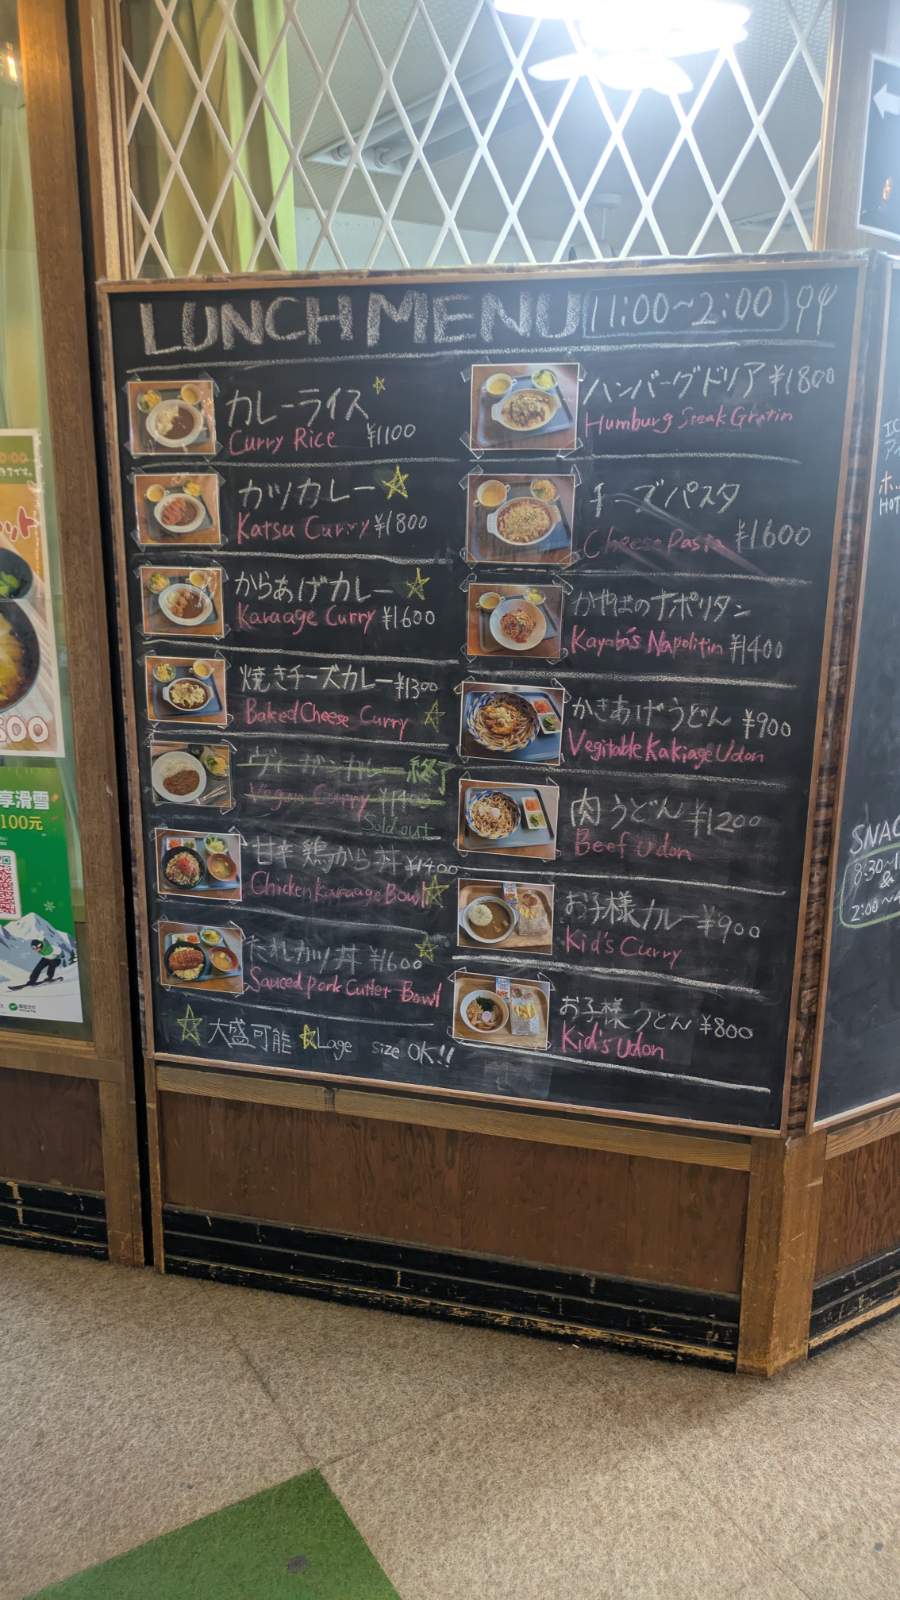 LUNCH MENU 11:00~2:00
カレーライス
Curry Rice ¥1100
カツカレー
Katsu Curry ¥1800
からあげカレー
Karaage Curry ¥1600
焼きチーズカレー ¥1300
Baked Cheese Curry
ヴィーガンカレー 終了
Vegan Curry ¥1400
Sold out
甘辛鶏から丼 ¥1400
Chicken Karaage Bowl
たれカツ丼 ¥1600
Sauced pork Cutlet Bowl
大盛可能 Lage size OK!!
ハンバーグドリア ¥1800
Humburg Steak Gratin
チーズパスタ
Cheese Pasta ¥1600
かやばのナポリタン
Kayaba's Napolitin ¥1400
かきあげうどん ¥900
Vegitable Kakiage Udon
肉うどん ¥1200
Beef Udon
お子様カレー ¥900
Kid's Curry
お子様うどん ¥800
Kid's Udon
享滑雪
100元
SNAC
8:30~1
&
2:00~4
HOT